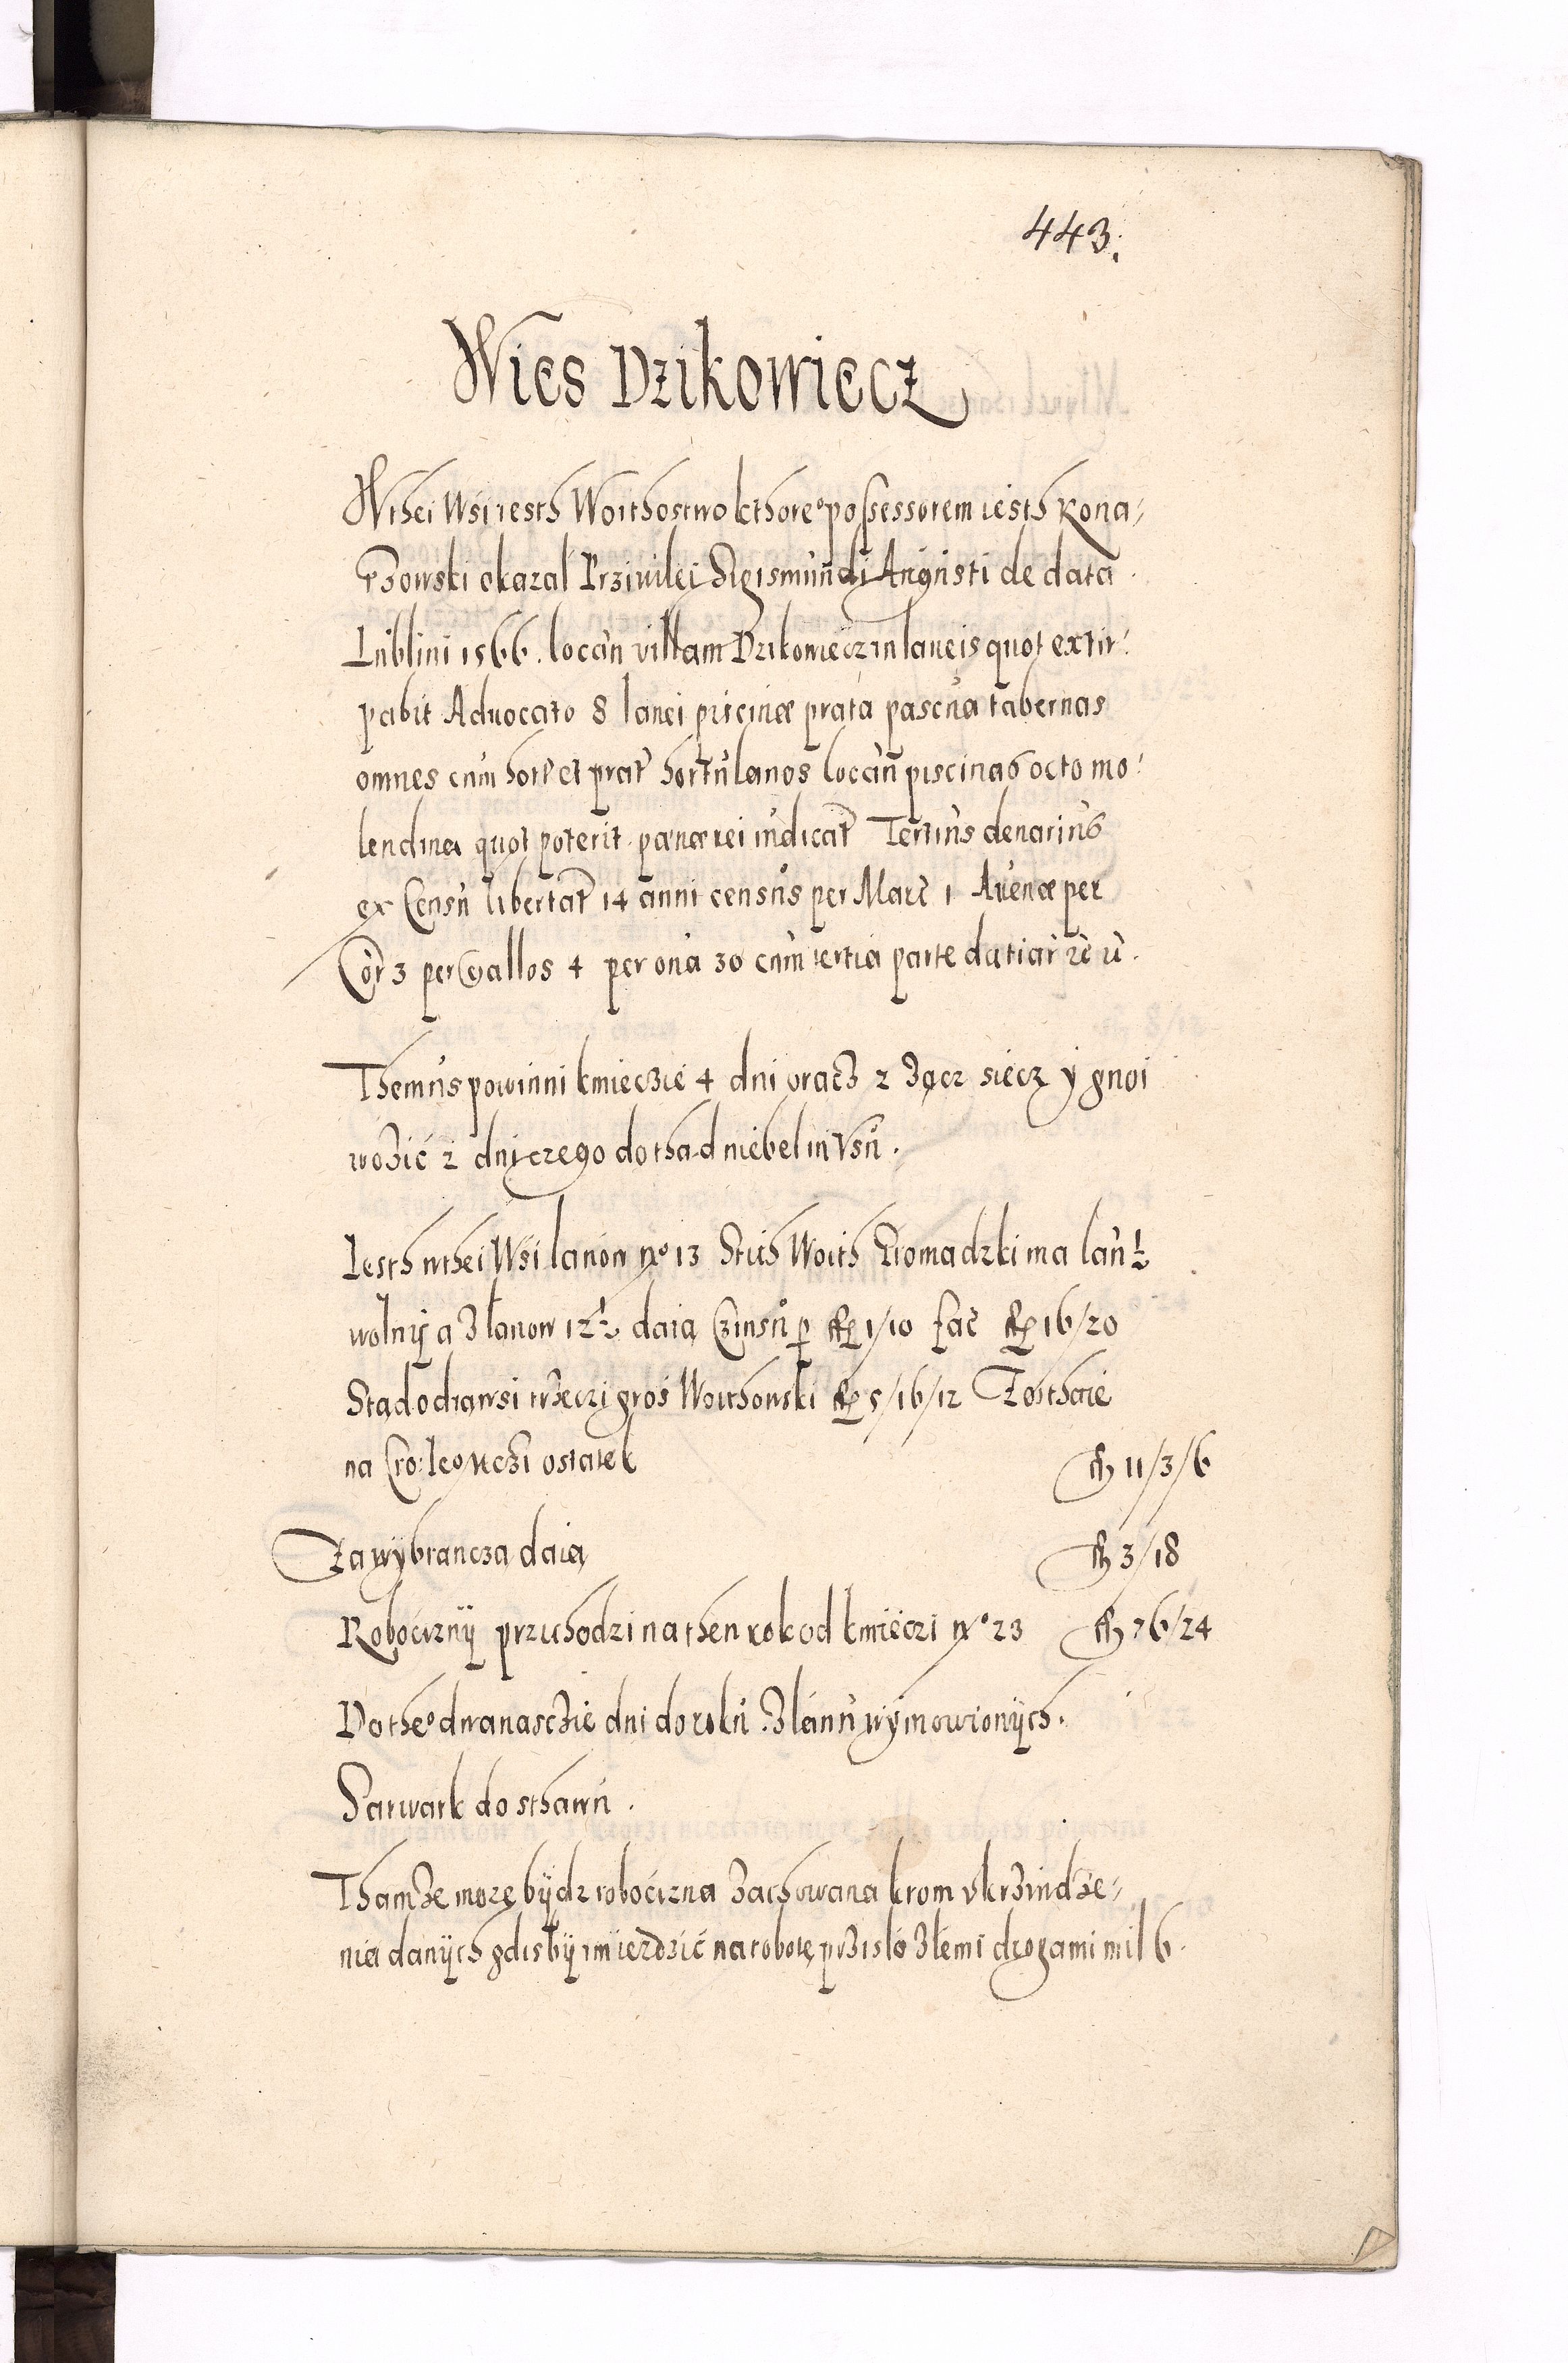 443.
Wies Dzikowiecz
Wthei Wsi iesth Woithostwo kthore° possessorem iesth Kona-
rzowski okazal Przivilei Sigismundi Augusti de data
Lublini 1566. locan villam Dzikowiecz in laneis quot extir-
pabit Advocato 8 lanei piscinæ prata pascua tabernas
omnes cum hort et prat hortulanos locan piscinas octo mo-
lendina quot poterit pænæ rei iudicat Tertius denarius
ex Censu libertat 14 anni census per Marc 1 Avenæ per
Cor 3 per Gallos 4 per ova 30 cum tertia parte datiar
Themus powinni kmieczie 4 dni oracz 2 żącz siecz y gnoi
wozić 2 dni czego dothad niebel in Vsu.
Iesth wthei Wsi lanow n° 13 Stich Woith Gromadzki ma lan ½
wolny a Zlanow 12½ daią Czinsu p fl 1/10 fac fl 16/20
Stad odiawsi trzeczi gros Woithowski fl 5/16/12 Zosthaie
na Cro: Ie° Mczi ostatek fl 11/3/6
Za wybrancza daią fl 3/18
Roboćizny przichodzi na then rok od kmieczi n° 23 fl 76/24
Do the° dwanasczie dni do roku Z lanu wymowionych.
Sarwark do sthawu.
Thamze moze bydz roboćizna Zachowana krom vkrziwdze-
nia danych gdisby im iezdzić na robotę prziślo Zlemi drogami mil 6.